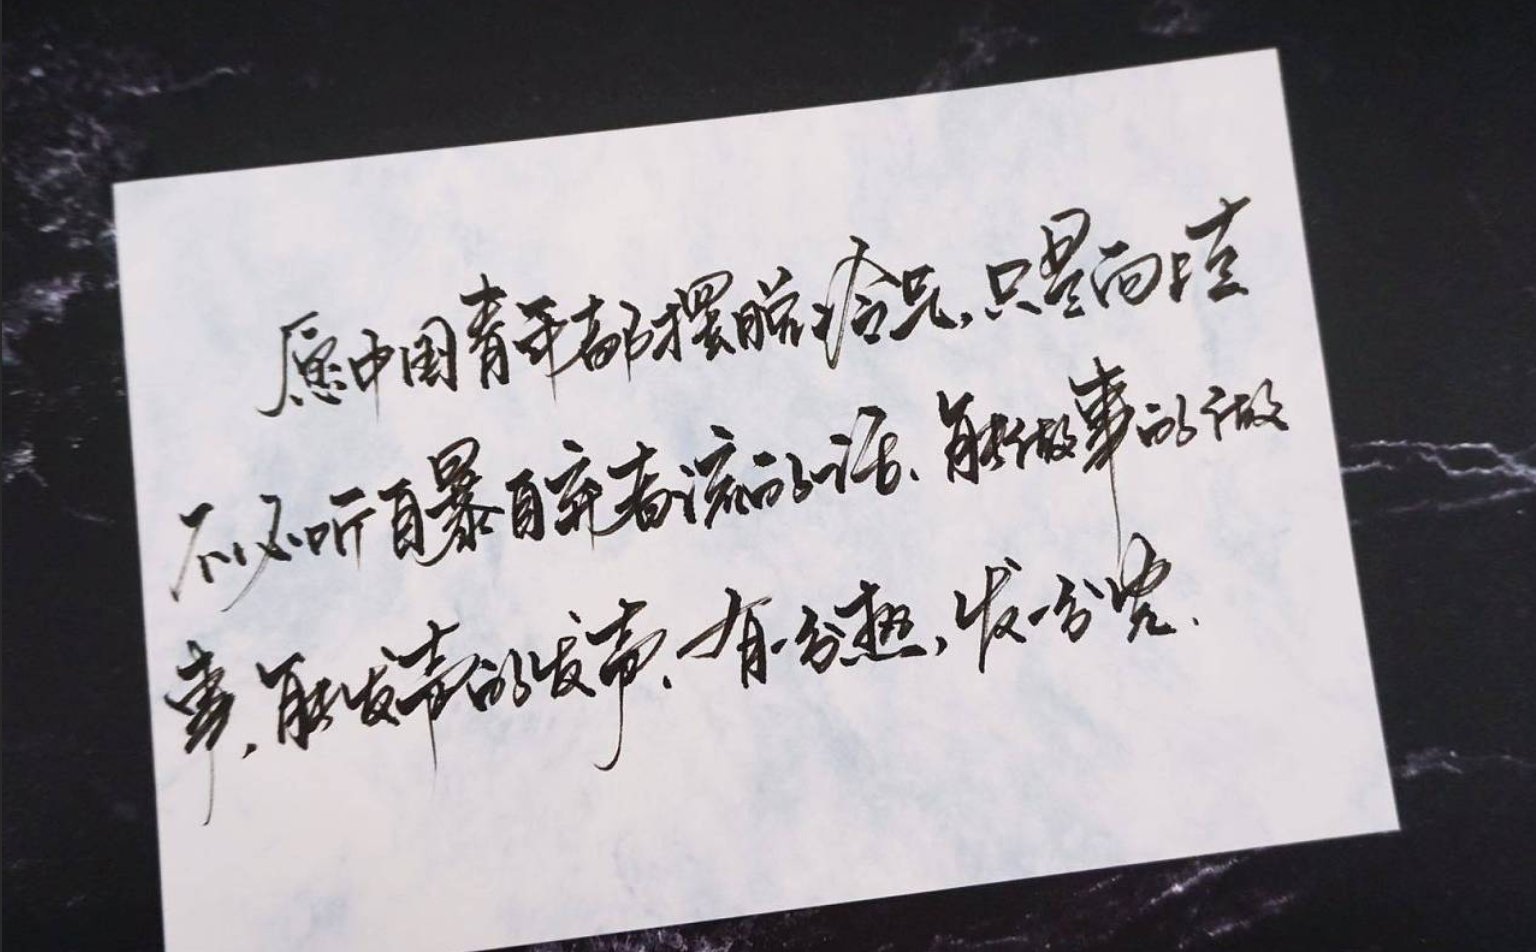 愿中国青年都摆脱冷气，只是向上走
不必听自暴自弃者流的话、能做事的做
事，能发声的发声、有一分热，发一分光.